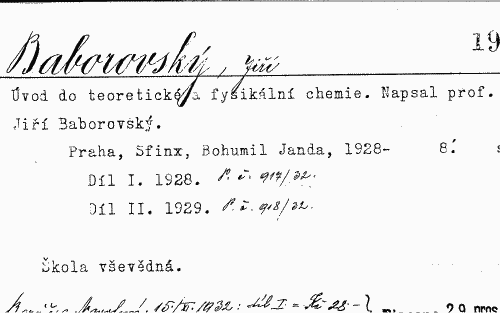 19
Baborovský, Jiří
Úvod do teoretické a fysikální chemie. Napsal prof.
Jiří Baborovský.
Praha, Sfinx, Bohumil Janda, 1928- 8°.
Díl I. 1928. P. č. 917/32.
Díl II. 1929. P. č. 918/32.
Škola vševědná.
1932: díl I = Kč 28.-
29. pros